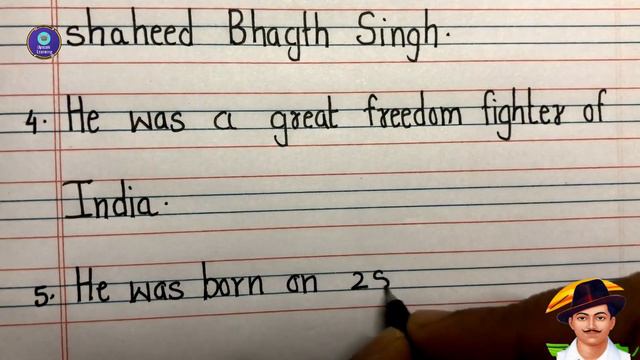 shaheed Bhagth Singh.
4. He was a great freedom fighter of
India.
5. He was born on 2